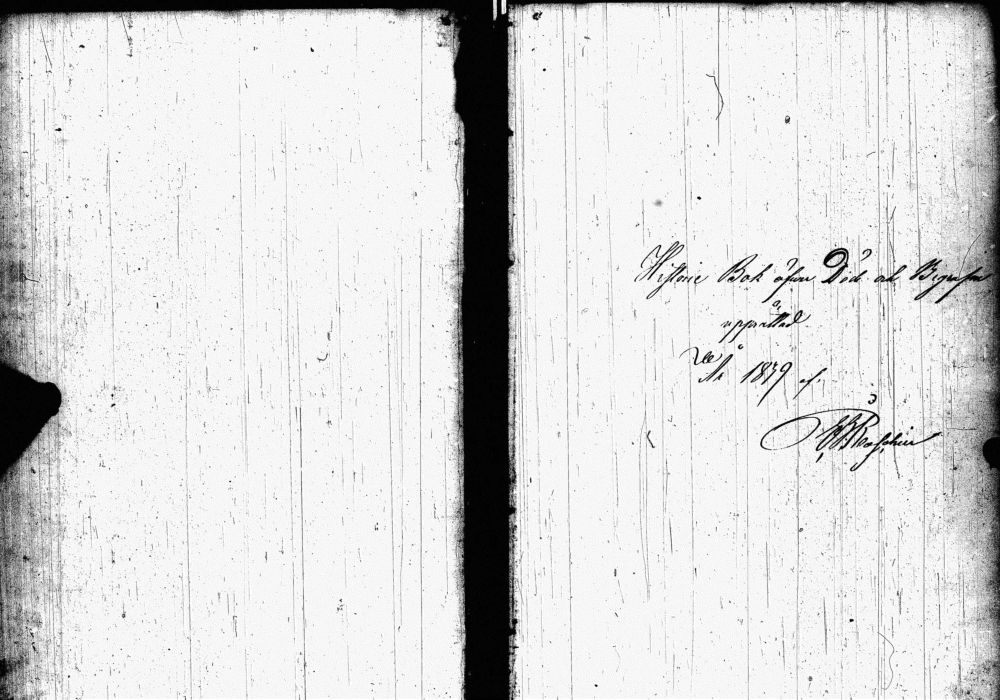 Historie Bok öfver Död och Begrafne
upprättad
År 1879 af.